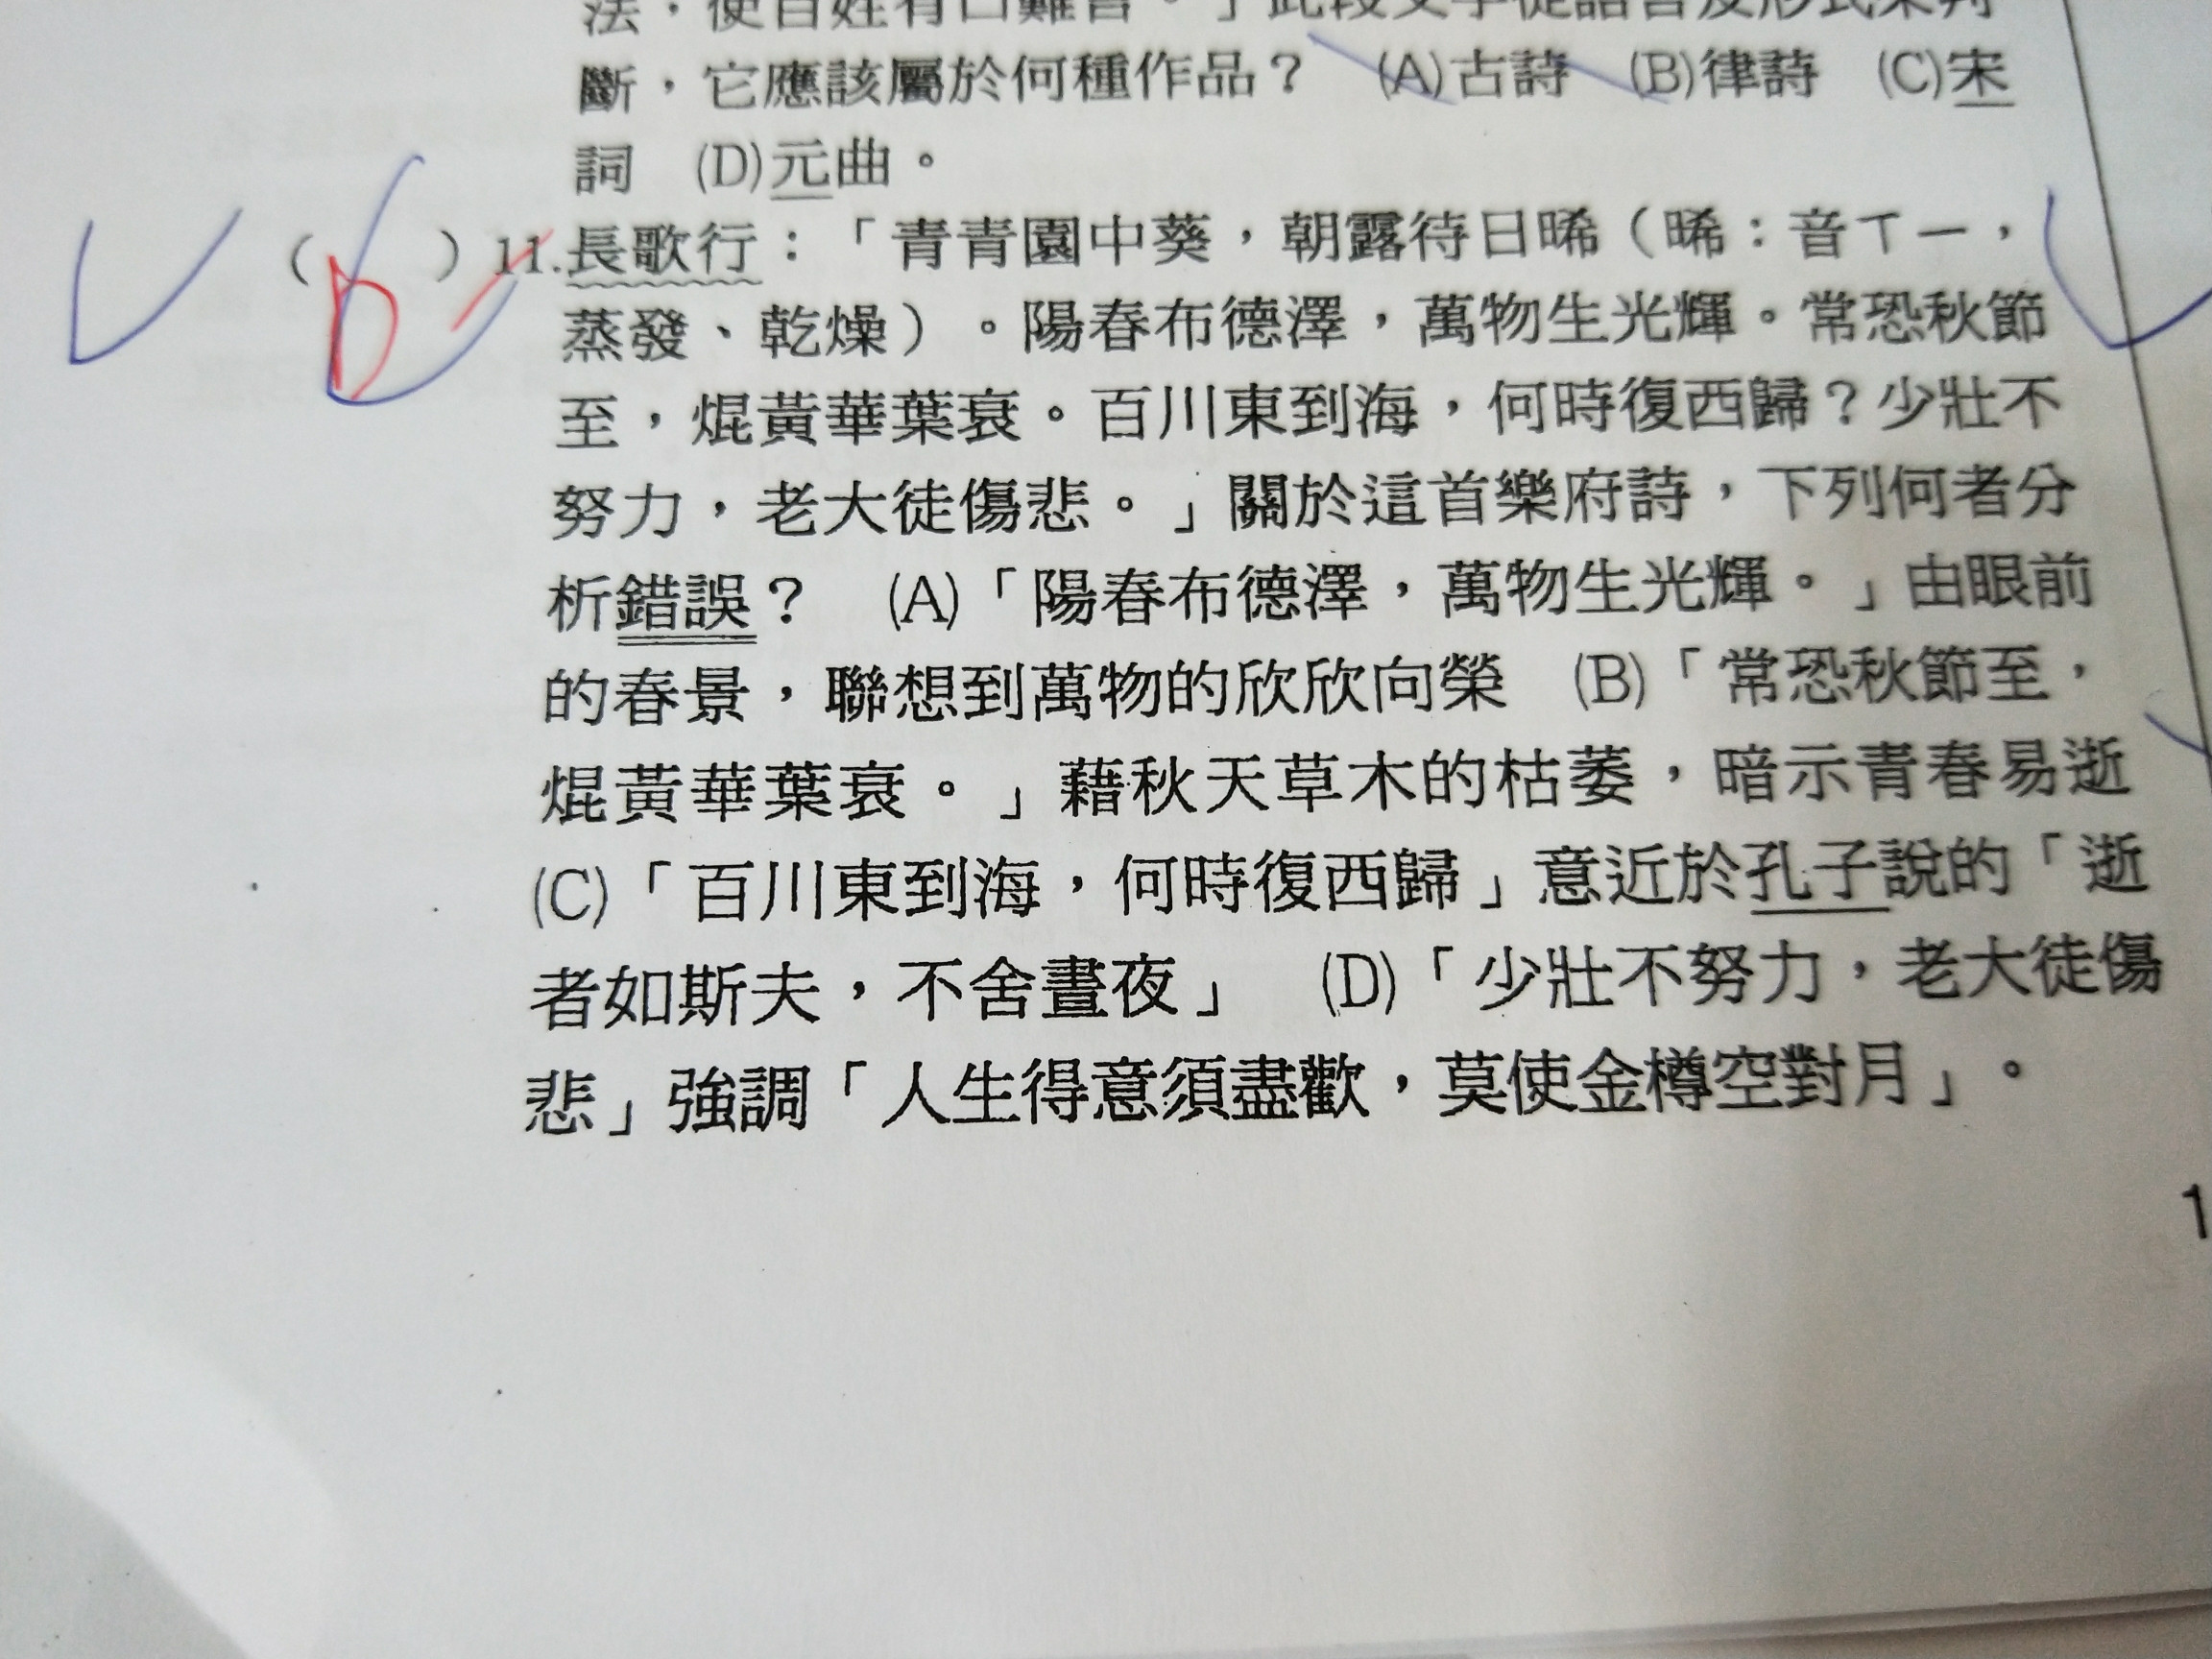 法，使百姓有口難言。」此段文字從語言及形式來判
斷，它應該屬於何種作品？　(A)古詩　(B)律詩　(C)宋
詞　(D)元曲。
（ D ）11.長歌行：「青青園中葵，朝露待日晞（晞：音ㄒㄧ，
蒸發、乾燥）。陽春布德澤，萬物生光輝。常恐秋節
至，焜黃華葉衰。百川東到海，何時復西歸？少壯不
努力，老大徒傷悲。」關於這首樂府詩，下列何者分
析錯誤？　(A)「陽春布德澤，萬物生光輝。」由眼前
的春景，聯想到萬物的欣欣向榮　(B)「常恐秋節至，
焜黃華葉衰。」藉秋天草木的枯萎，暗示青春易逝
(C)「百川東到海，何時復西歸」意近於孔子說的「逝
者如斯夫，不舍晝夜」　(D)「少壯不努力，老大徒傷
悲」強調「人生得意須盡歡，莫使金樽空對月」。
1